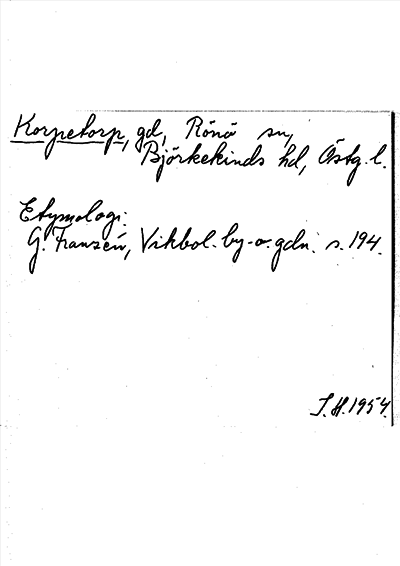 Korpetorp, gd, Rönö sn,
Björkekinds hd, Östg. l.
Etymologi:
G. Franzén, Vikbol. by- o. gdn. s. 194.
S. H. 1954.